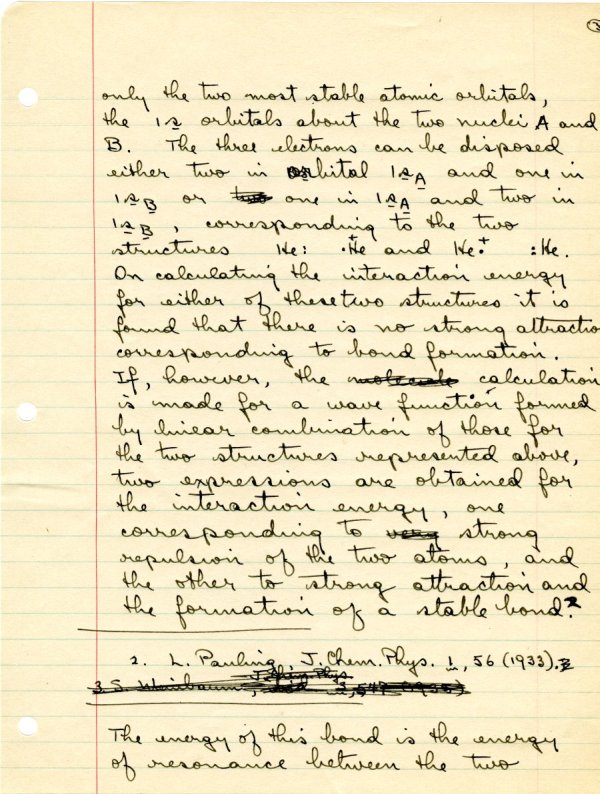 only the two most stable atomic orbitals,
the 1s orbitals about the two nuclei A and
B. The three electrons can be disposed
either two in orbital 1s_A and one in
1s_B or two one in 1s_A and two in
1s_B, corresponding to the two
structures He: ·He⁺ and He·⁺ :He.
On calculating the interaction energy
for either of these two structures it is
found that there is no strong attractio
corresponding to bond formation.
If, however, the molecule calculation
is made for a wave function formed
by linear combination of those for
the two structures represented above,
two expressions are obtained for
the interaction energy, one
corresponding to very strong
repulsion of the two atoms, and
the other to strong attraction and
the formation of a stable bond.²
2. L. Pauling, J. Chem. Phys. 1, 56 (1933).
J. Chem. Phys.
3. S. Weinbaum,
The energy of this bond is the energy
of resonance between the two